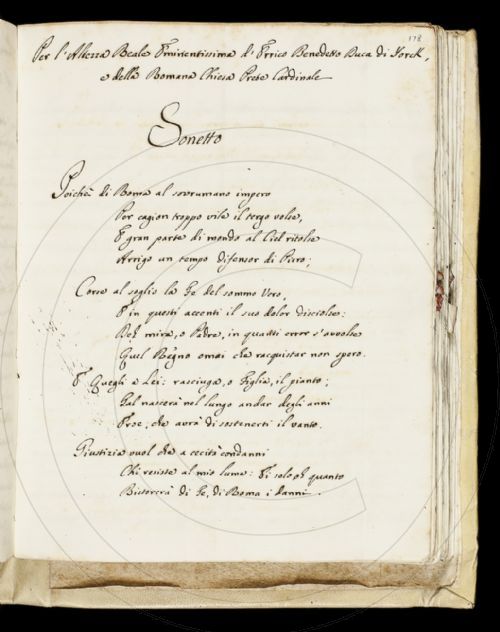 178
Per l'Altezza Reale Eminentissima d'Errico Benedetto Duca di Yorck,
e della Romana Chiesa Prete Cardinale
Sonetto
Poichè di Roma al sovrumano impero
Per cagion troppo vile il tergo volse,
E gran parte di mondo al Ciel ritolse
Arrigo un tempo difensor di Piero;
Corse al soglio la Fe del sommo Vero,
E in questi accenti il suo dolor disciolse:
Deh mira, o Padre, in quanti error s'avvolse
Quel Regno omai che racquistar non spero.
E Quegli a Lei: rasciuga, o Figlia, il pianto;
Tal nascerà nel lungo andar degli anni
Eroe, che avrà di sostenerti il vanto.
Giustizia vuol che a cecità condanni
Chi resiste al mio lume: Ei solo quanto
Ristorerà di Fe, di Roma i danni.